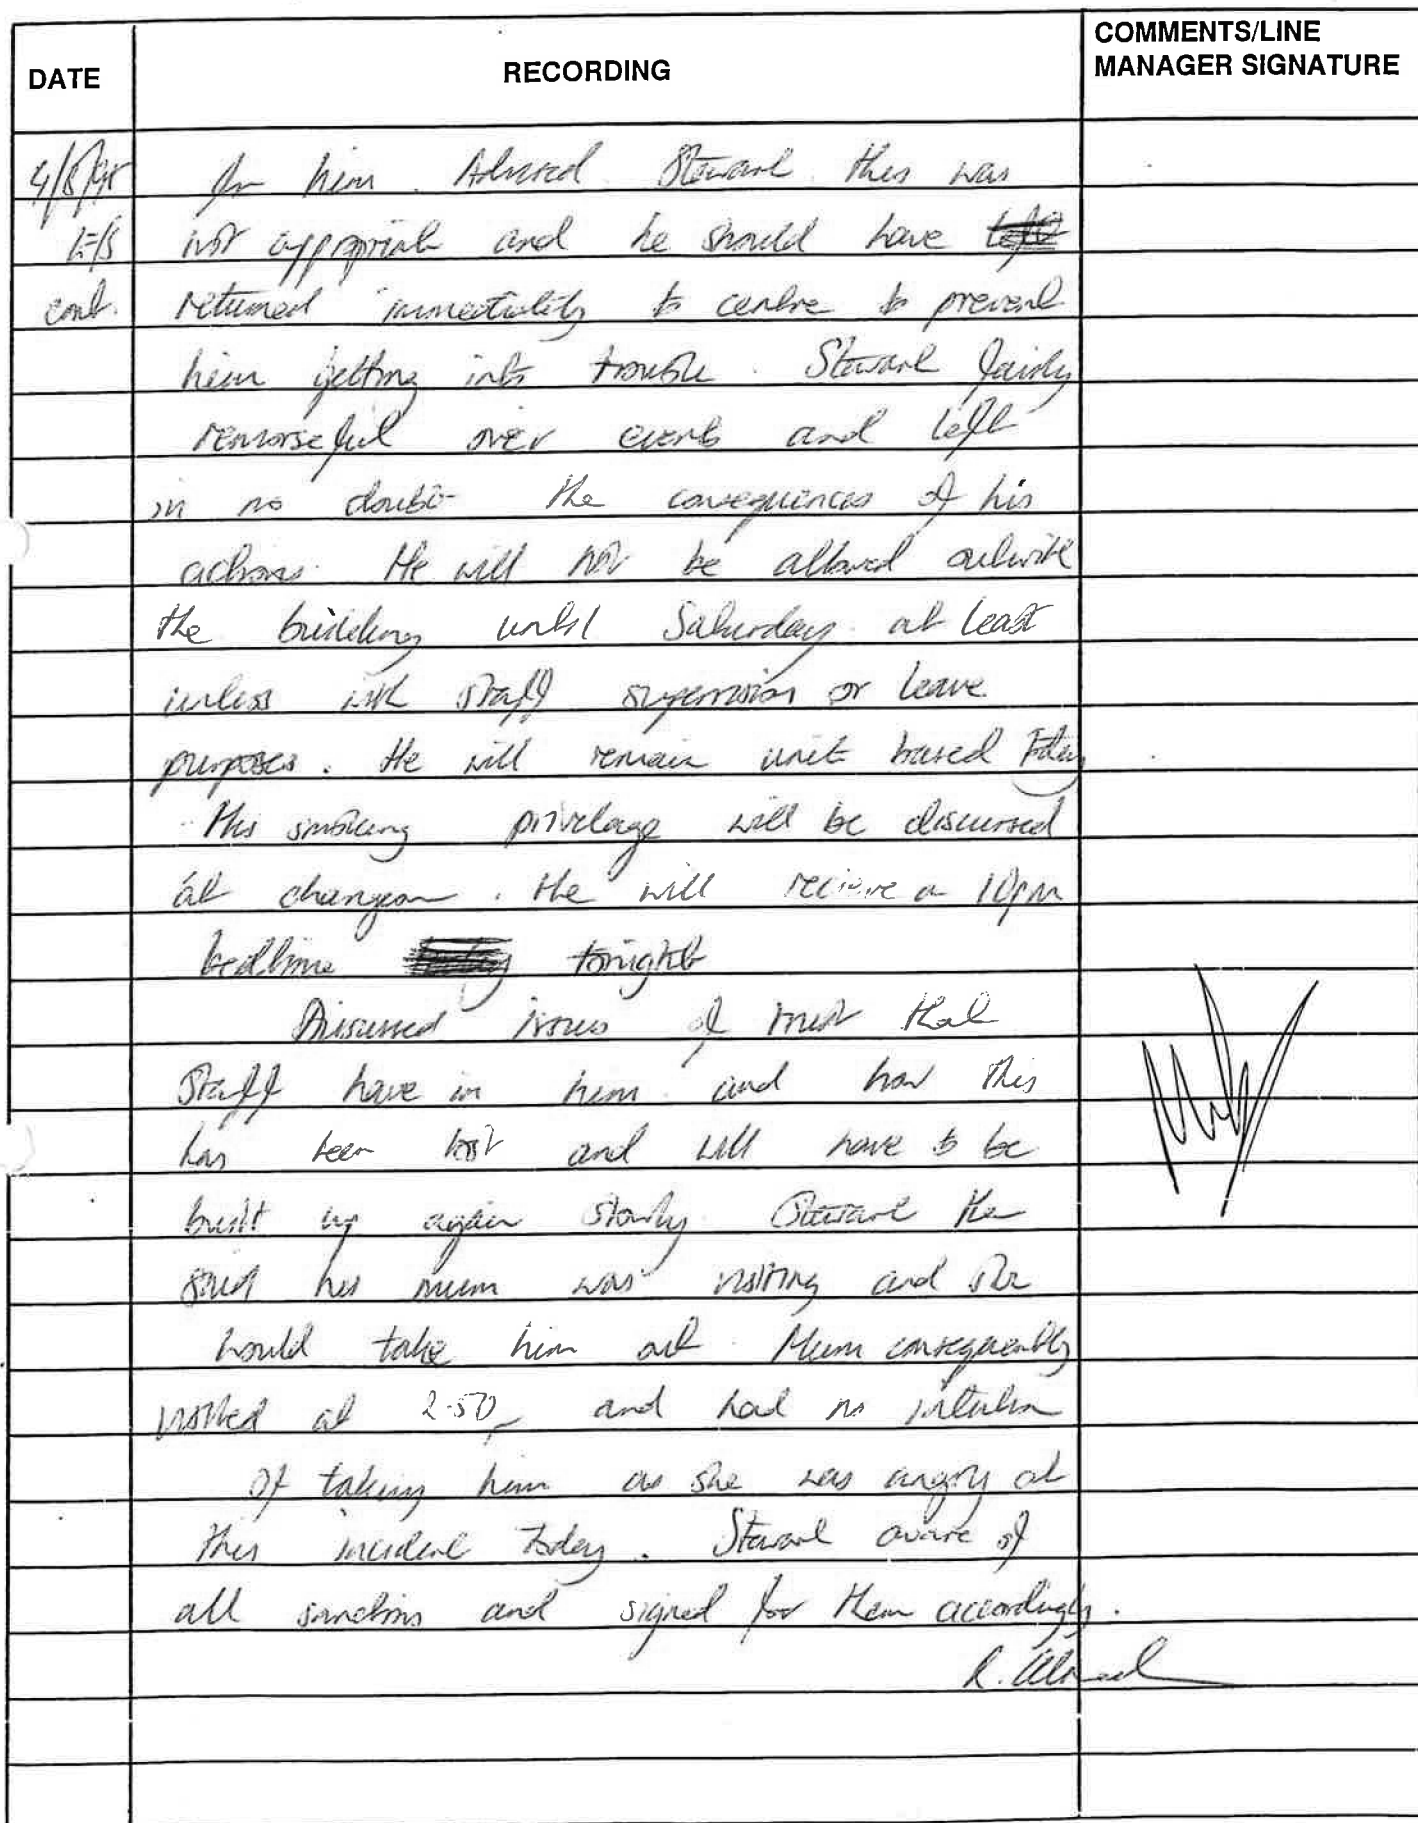 DATE
RECORDING
COMMENTS/LINE
MANAGER SIGNATURE
4/8/98 for him. Advised Stewart this was
E/S not appropriate and he should have
cont. returned immediately to centre to prevent
him getting into trouble. Stewart fairly
remorseful over events and left
in no doubt the consequences of his
actions. He will not be allowed outwith
the building until Saturday at least
unless with staff supervision or leave
purposes. He will remain unit based today
His smoking privelage will be discussed
at changeover. He will recieve a 10pm
bedtime tonight
Discussed issues of trust that
Staff have in him and how this
has been lost and will have to be
built up again slowly. Stewart
said his mum was visiting and she
would take him out. Mum consequently
visited at 2-50 and had no intention
of taking him as she was angry at
this incident today. Stewart aware of
all sanctions and signed for them accordingly.